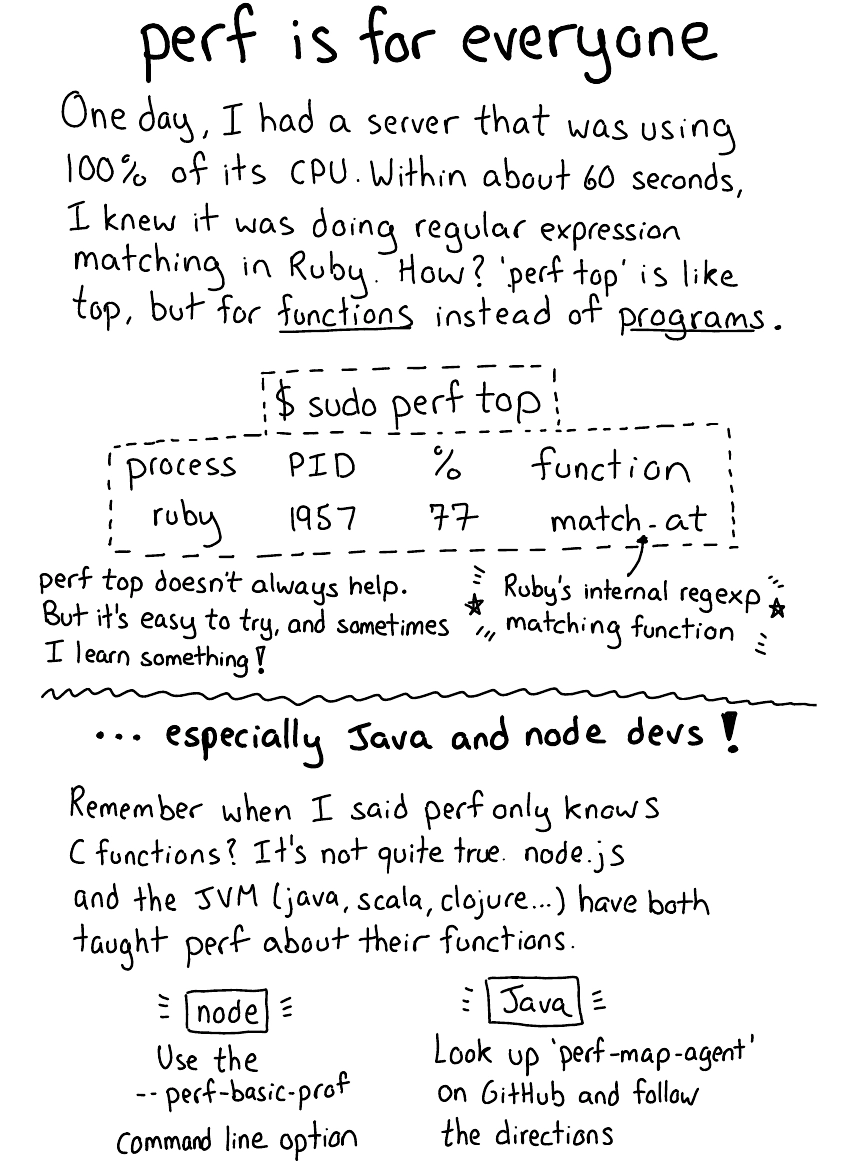 perf is for everyone
One day, I had a server that was using
100% of its CPU. Within about 60 seconds,
I knew it was doing regular expression
matching in Ruby. How? 'perf top' is like
top, but for functions instead of programs.
$ sudo perf top
process PID % function
ruby 1957 77 match-at
perf top doesn't always help.
But it's easy to try, and sometimes
I learn something!
Ruby's internal regexp
matching function
... especially Java and node devs!
Remember when I said perf only knows
C functions? It's not quite true. node.js
and the JVM (java, scala, clojure...) have both
taught perf about their functions.
node
Use the
--perf-basic-prof
command line option
Java
Look up 'perf-map-agent'
on GitHub and follow
the directions